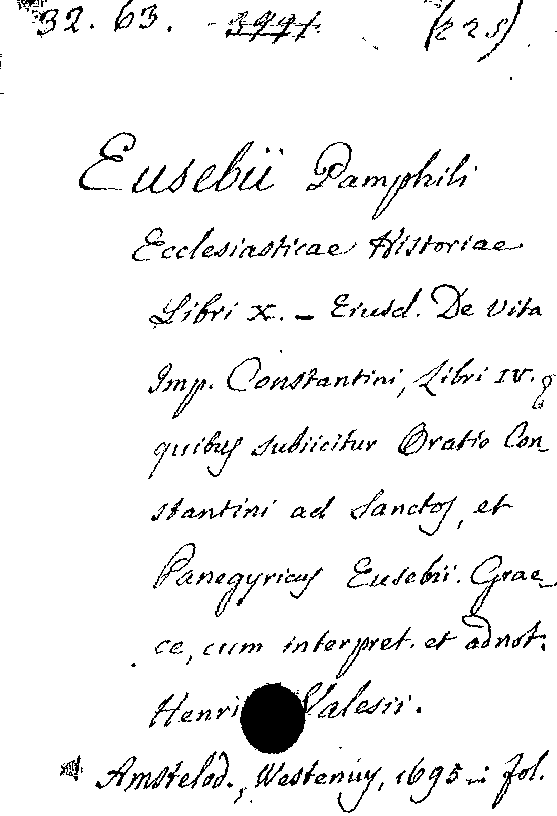 32. 63. 3991. (225)
Eusebii Pamphili
Ecclesiasticae Historiae
Libri X. – Eiusd. De Vita
Imp. Constantini, Libri IV.
quibus subiicitur Oratio Con_
stantini ad Sanctos, et
Panegyricus Eusebii. Grae_
ce, cum interpret. et adnot.
Henri Valesii.
Amstelod., Westenius, 1695 _: fol.